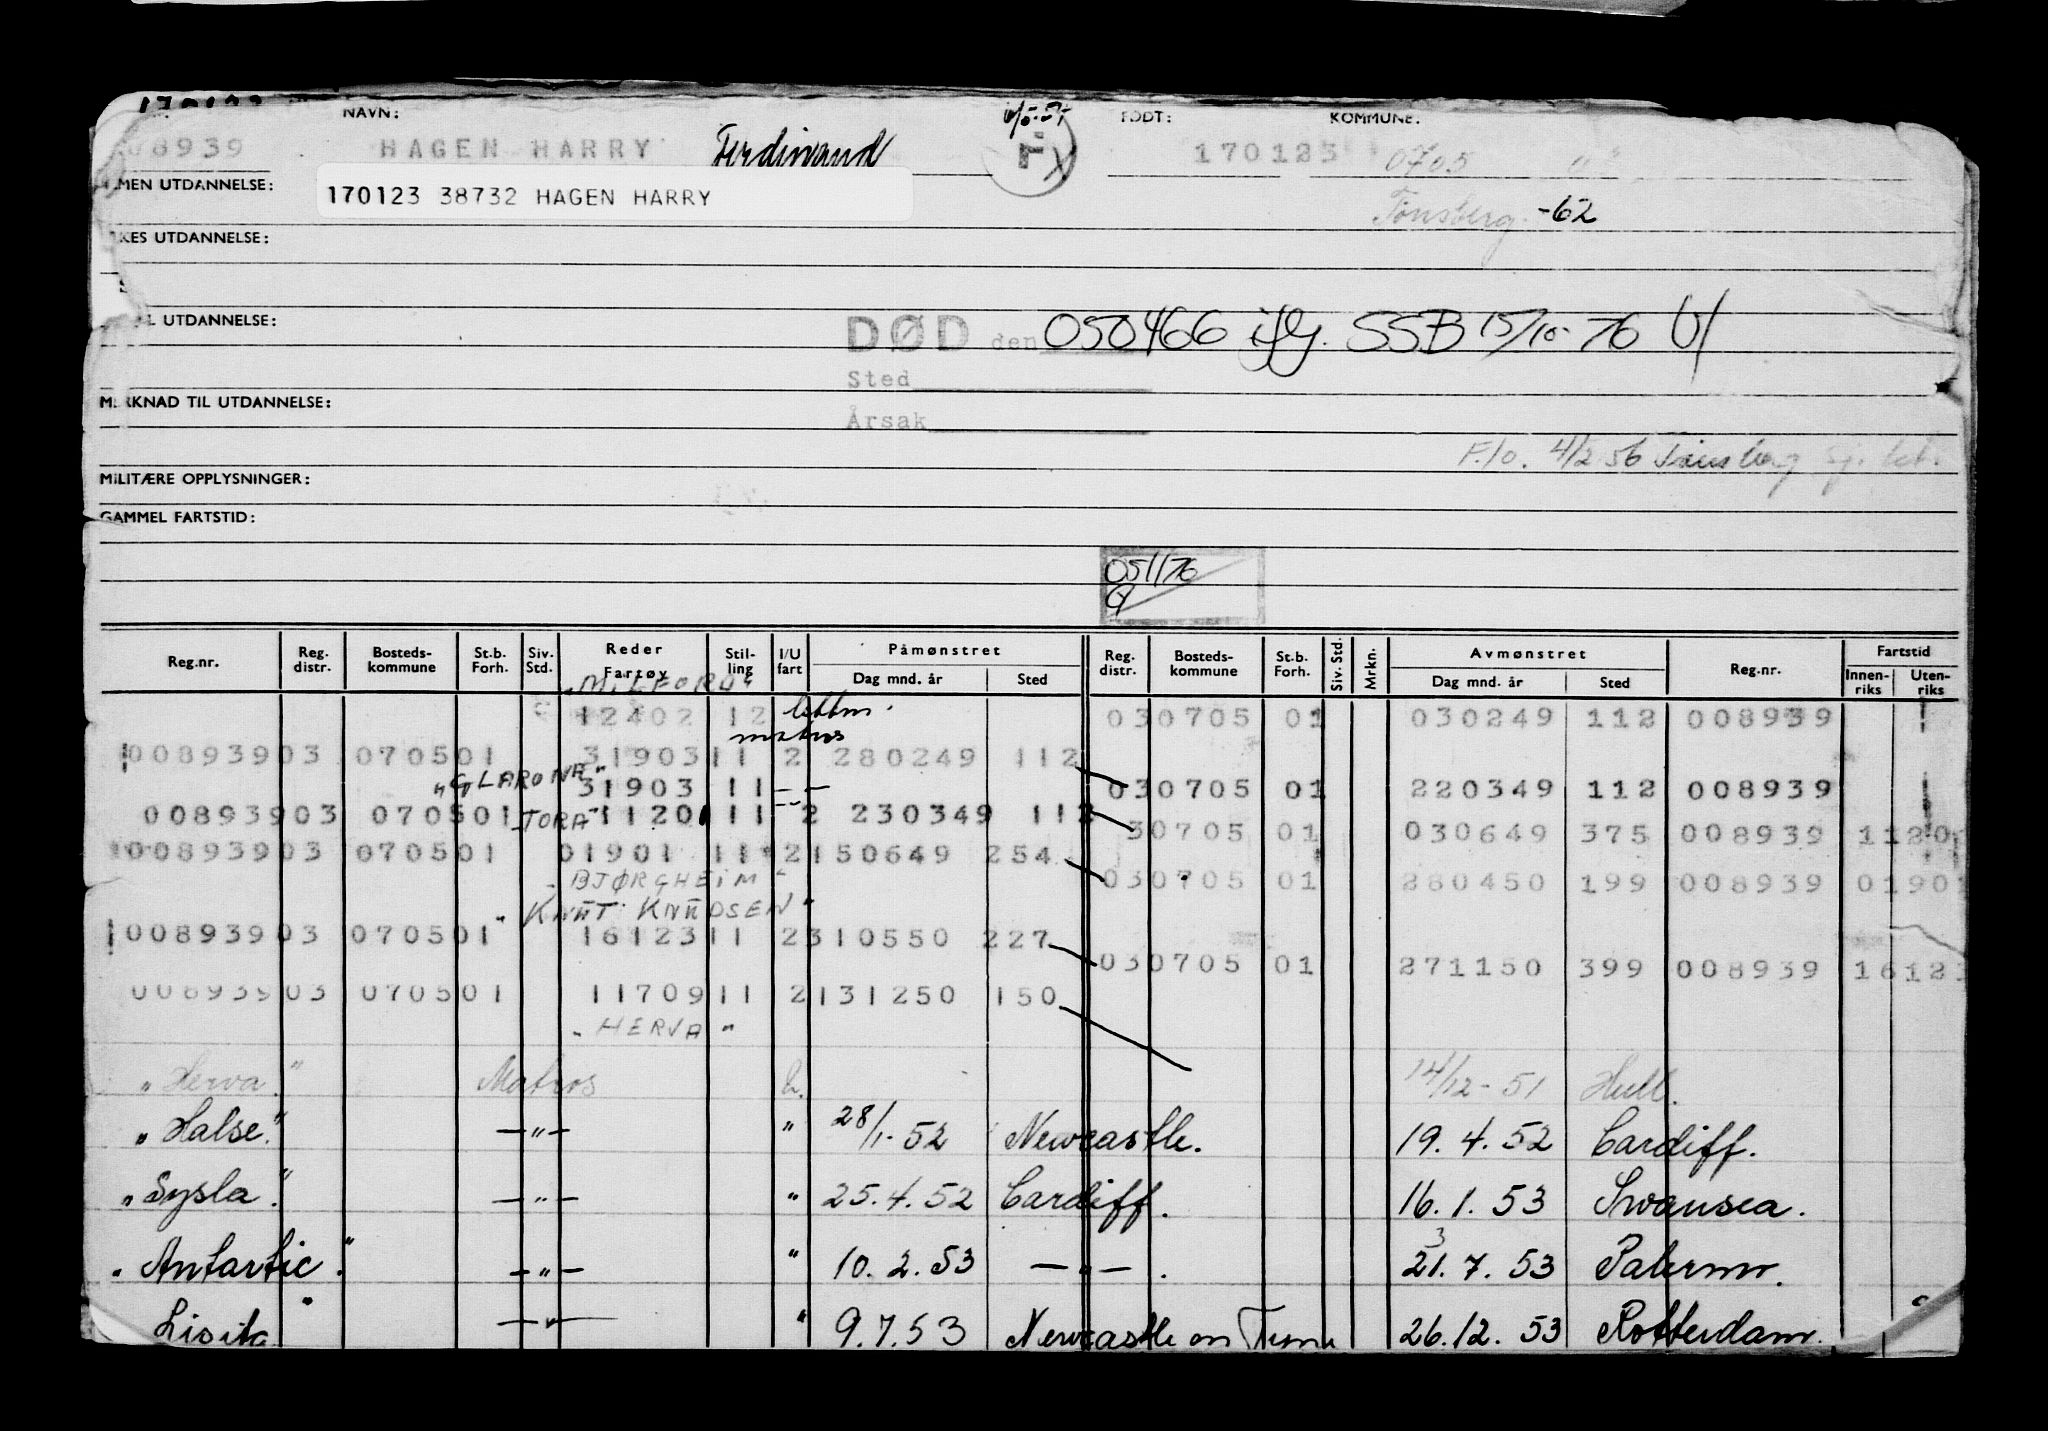 NAVN: FØDT: KOMMUNE:
08939 HAGEN HARRY Ferdinand 170123 0705
MEN UTDANNELSE: 170123 38732 HAGEN HARRY
Tønsberg -62
KES UTDANNELSE:
L UTDANNELSE: DØD den 050466 ifg. SSB 15/10-76
Sted
MERKNAD TIL UTDANNELSE:
Årsak
F./o. 4/2 56 Tønsberg
MILITÆRE OPPLYSNINGER:
GAMMEL FARTSTID:
051176
Reg.nr. Reg. distr. Bosteds-kommune St.b. Forh. Siv. Std. Reder Fartøy Stil-ling I/U fart Påmønstret Dag mnd. år Sted Reg. distr. Bosteds-kommune St.b. Forh. Siv. Std. Mrkn. Avmønstret Dag mnd. år Sted Reg.nr. Fartstid Innen-riks Uten-riks
"MILFORD"
12402 12 lettm. 030705 01 030249 112 008939
matros
008939 03 0705 01 31903 11 2 280249 112
"GLARONA" 31903 11 - - 030705 01 220349 112 008939
008939 03 0705 01 "TORA" 11201 11 2 230349 112
30705 01 030649 375 008939 1120
008939 03 0705 01 01901 11 2 150649 254
"BJØRGHEIM" 030705 01 280450 199 008939 01901
"KNUT KNUDSEN"
008939 03 0705 01 16123 11 2 310550 227
030705 01 271150 399 008939 1612
008939 03 0705 01 11709 11 2 131250 150
"HERVA"
"Herva" Matros u. 14/12-51 Hull.
"Halse" —"— " 28/1-52 Newcastle. 19.4.52 Cardiff.
"Sysla" —"— " 25.4.52 Cardiff. 16.1.53 Swansea.
3
"Antartic" —"— " 10.2.53 —"—. 21.7.53 Palermo.
Lisita" —"— " 9.7.53 Newcastle on Tyne 26.12.53 Rotterdam.